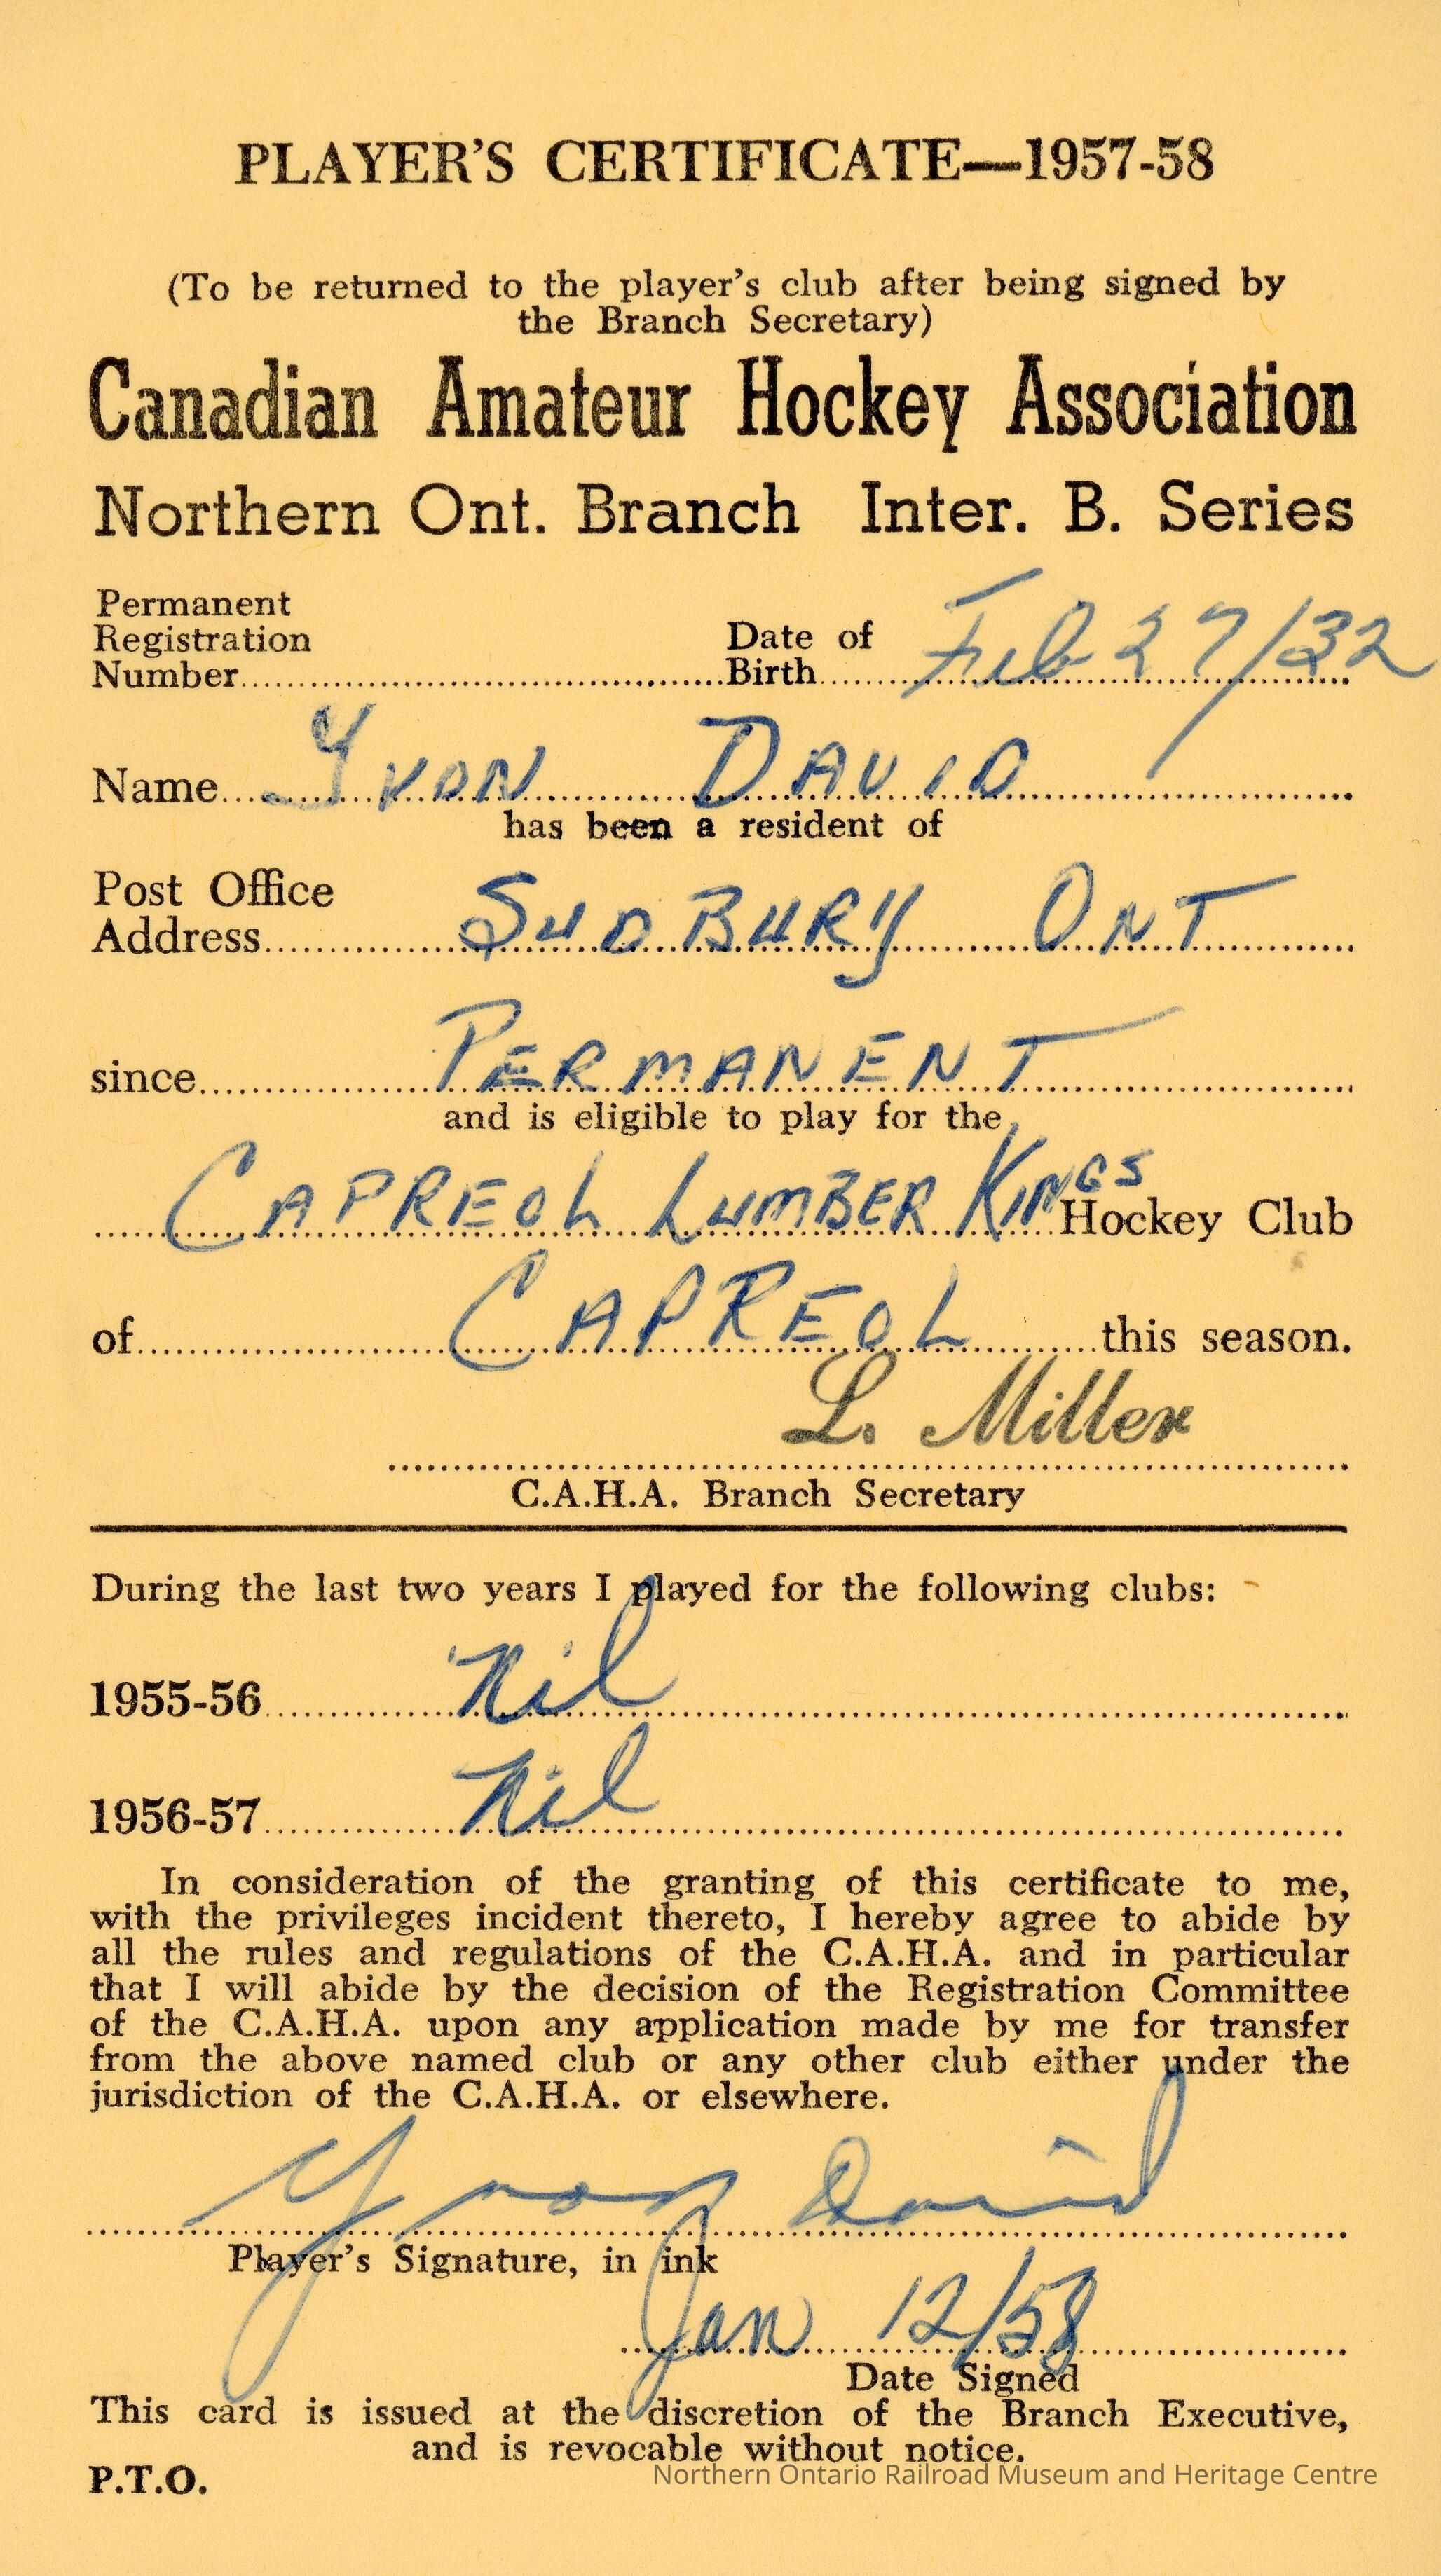 PLAYER'S CERTIFICATE—1957-58
(To be returned to the player's club after being signed by
the Branch Secretary)
Canadian Amateur Hockey Association
Northern Ont. Branch Inter. B. Series
Permanent
Registration
Number
Date of
Birth Feb 27/32
Name Yvon David
has been a resident of
Post Office
Address SUDBURY ONT
since PERMANENT
and is eligible to play for the
CAPREOL LUMBER KINGS Hockey Club
of CAPREOL this season.
L. Miller
C.A.H.A. Branch Secretary
During the last two years I played for the following clubs:
1955-56 Nil
1956-57 Nil
In consideration of the granting of this certificate to me,
with the privileges incident thereto, I hereby agree to abide by
all the rules and regulations of the C.A.H.A. and in particular
that I will abide by the decision of the Registration Committee
of the C.A.H.A. upon any application made by me for transfer
from the above named club or any other club either under the
jurisdiction of the C.A.H.A. or elsewhere.
Yvon David
Player's Signature, in ink
Jan 12/58
Date Signed
This card is issued at the discretion of the Branch Executive,
and is revocable without notice.
P.T.O.
Northern Ontario Railroad Museum and Heritage Centre